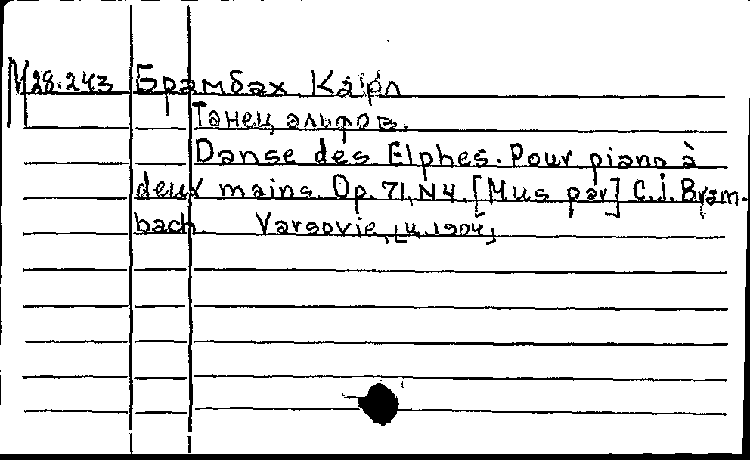 М28.243 Брамбах Карл
Танец эльфов.
Danse des Elphes. Pour piano à
deux mains. Op. 71, N4. [Mus par] C.J. Bram-
bach. Varsovie, [ц. 1904]